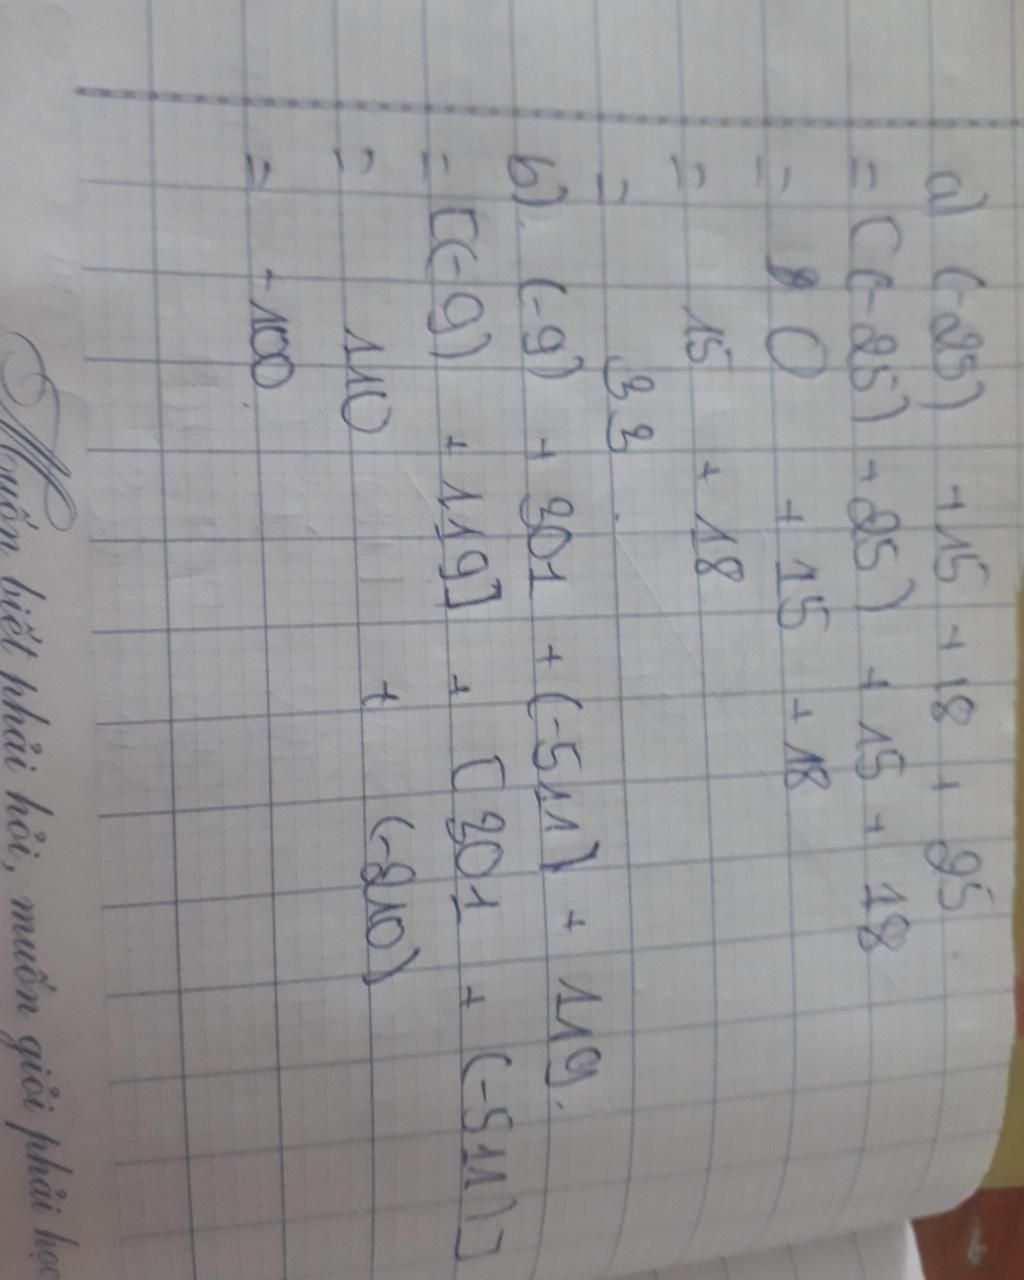 a) (-25) + 15 + 18 + 25.
= ((-25) + 25) + 15 + 18
= 0 + 15 + 18
= 15 + 18
= 33.
b). (-9) + 301 + (-511) + 119.
= [(-9) + 119] + [301 + (-511)]
= 110 + (-210)
= -100
Muốn biết phải hỏi, muốn giỏi phải học